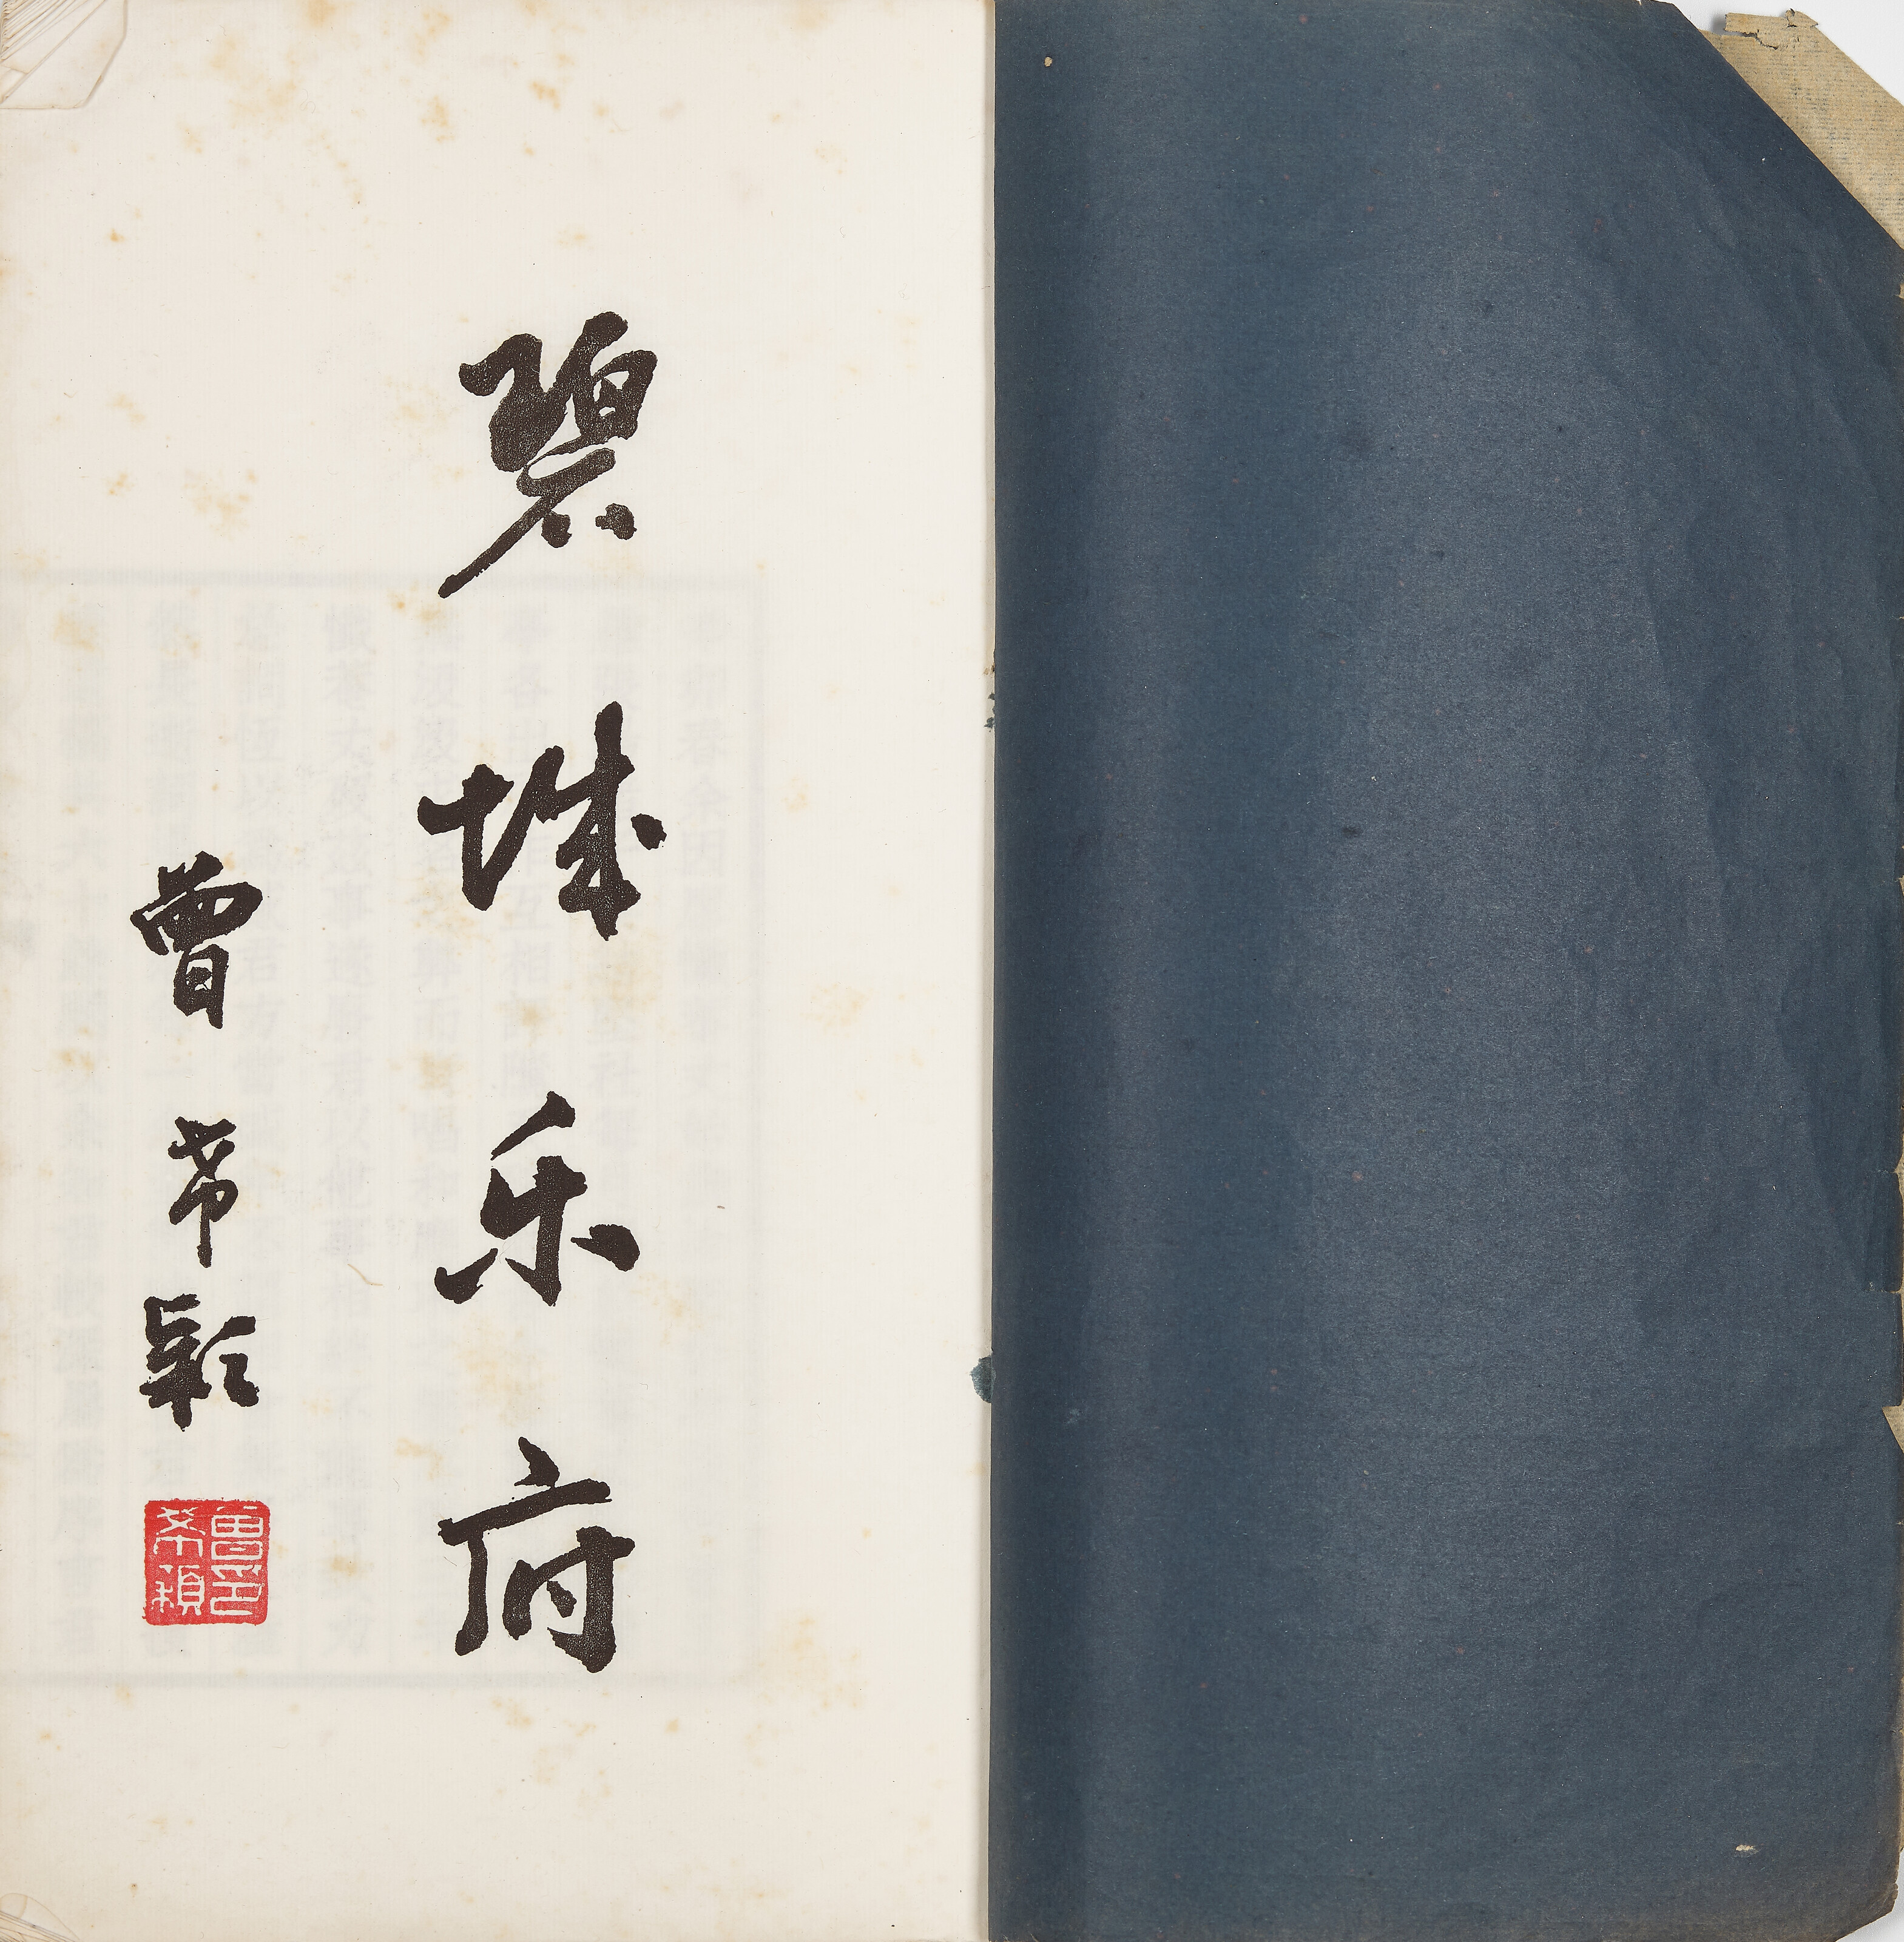 碧城乐府
曾希颖
曾希穎印